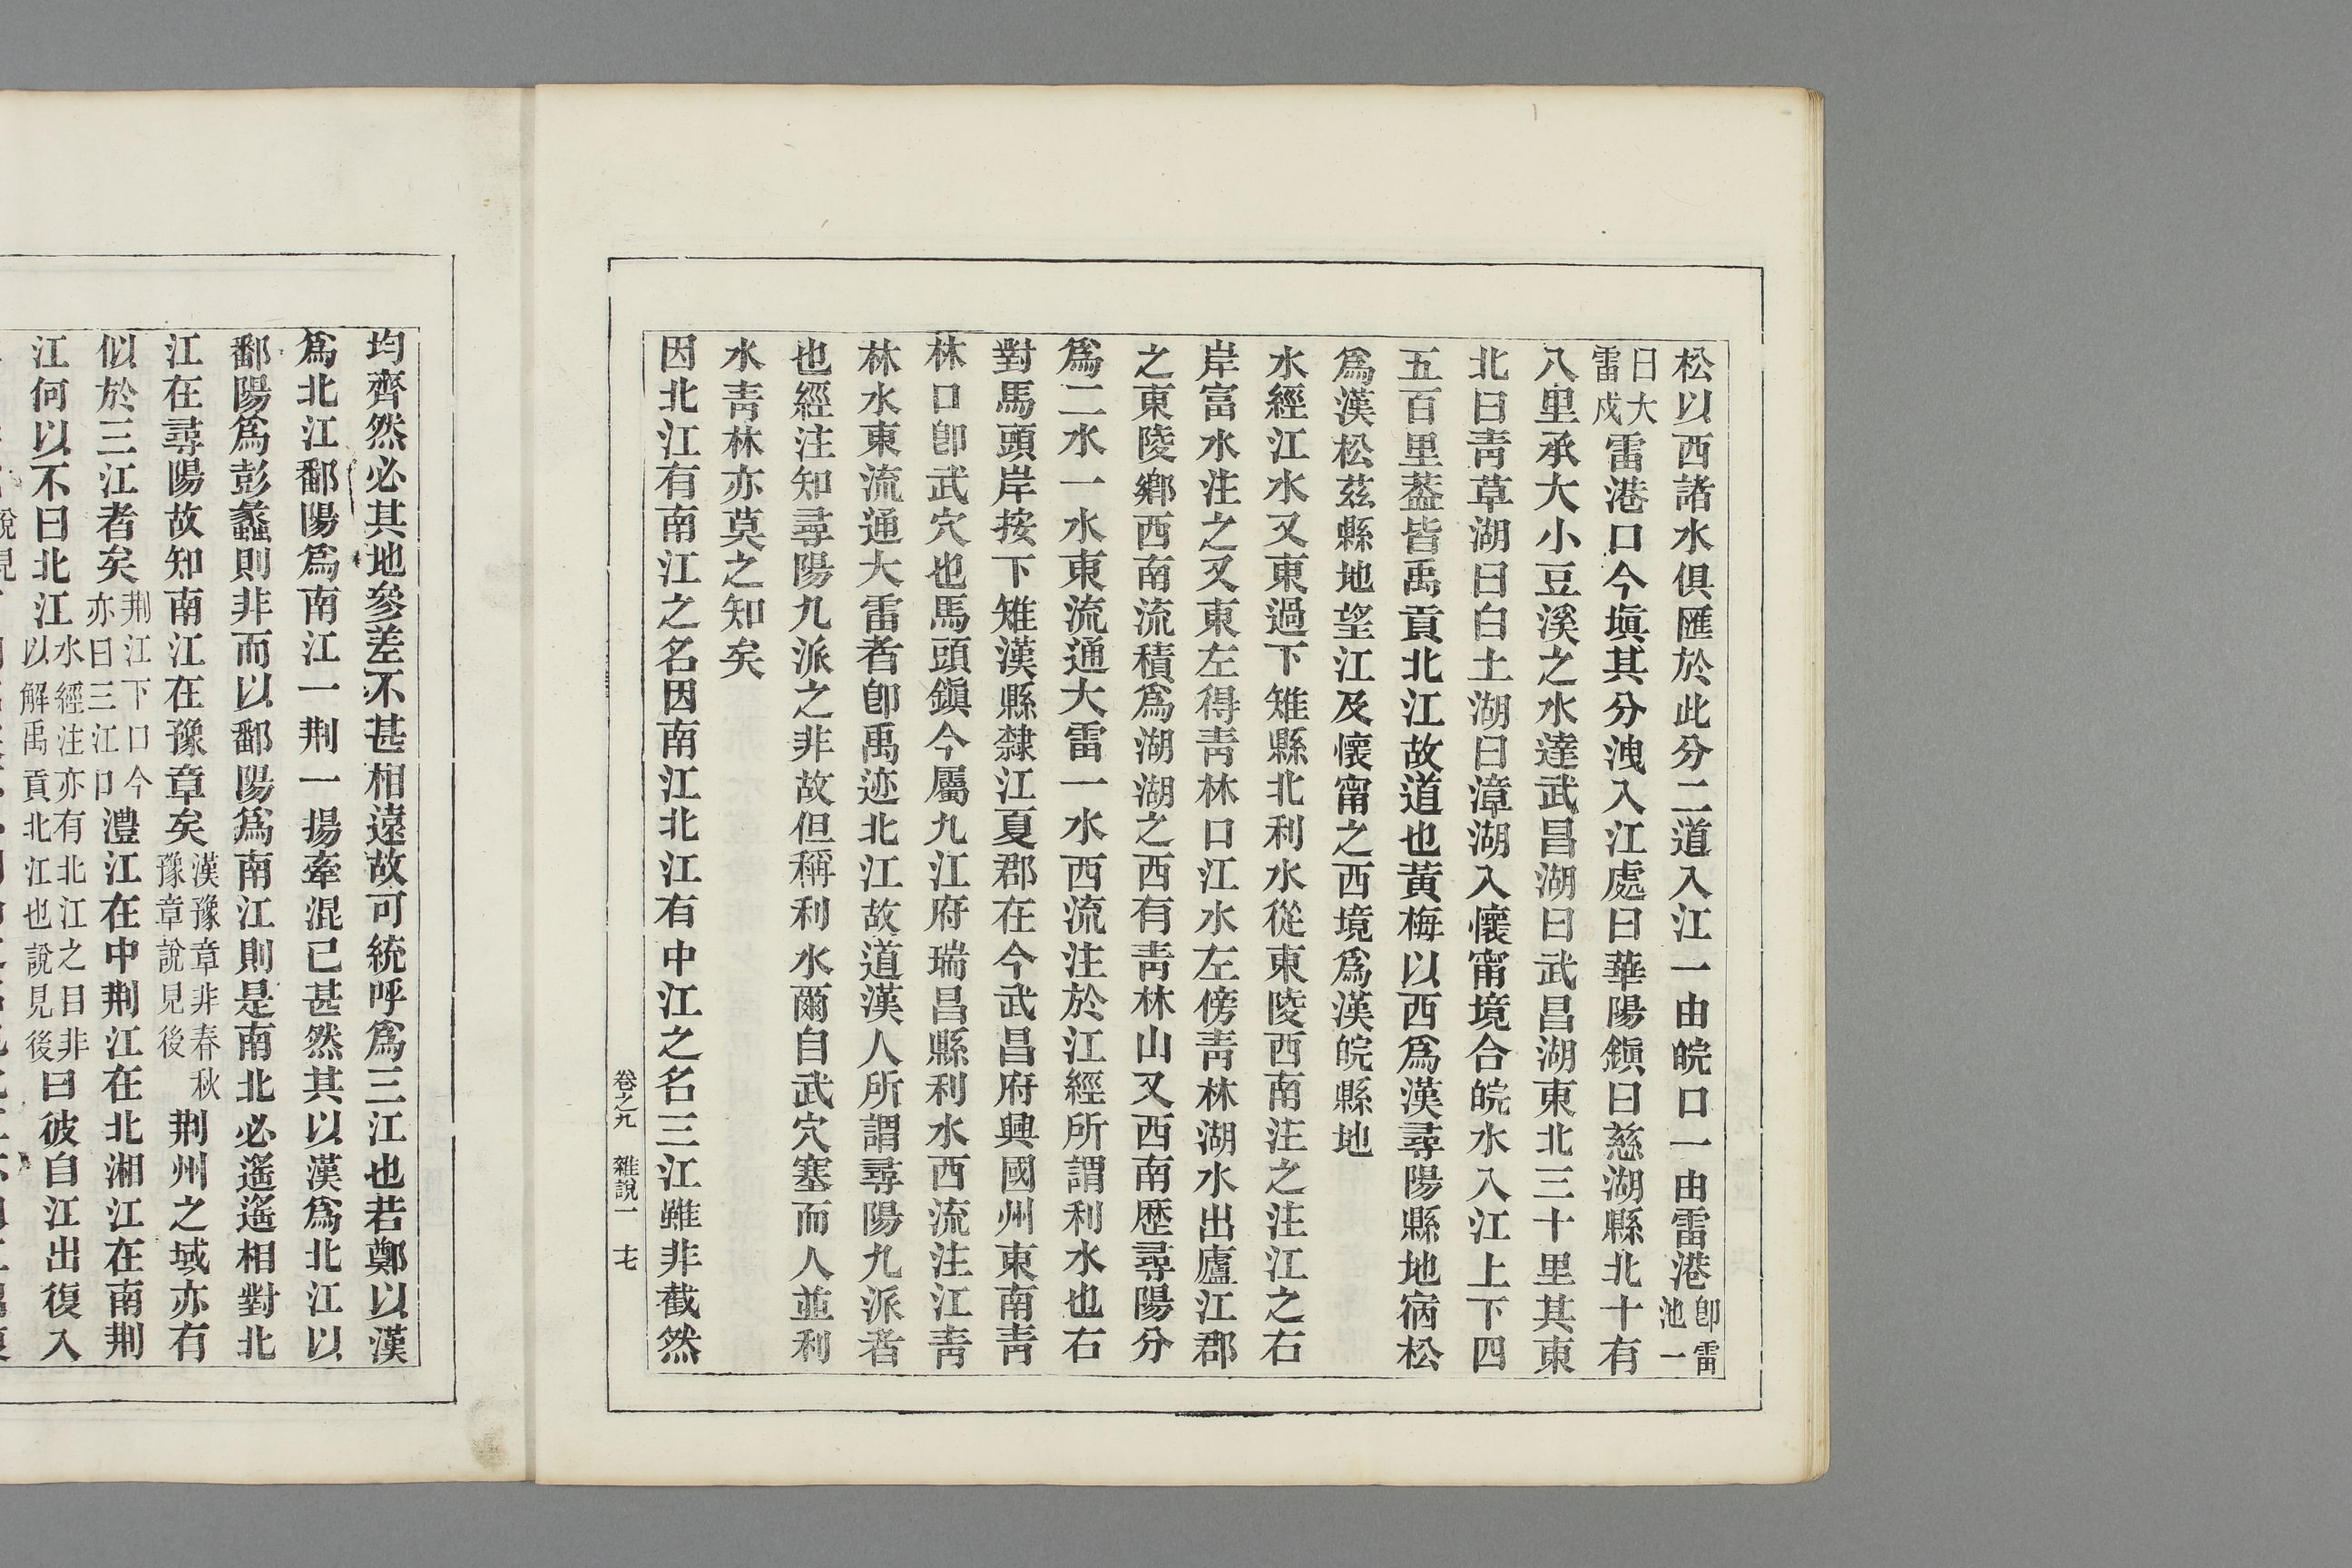 松以西諸水俱匯於此分二道入江一由皖口一由雷港卽雷池一
曰大雷戍雷港口今塡其分洩入江處曰華陽鎭曰慈湖縣北十有
八里承大小豆溪之水達武昌湖曰武昌湖東北三十里其東
北曰靑草湖曰白土湖曰漳湖入懷甯境合皖水入江上下四
五百里葢皆禹貢北江故道也黃梅以西爲漢尋陽縣地宿松
爲漢松茲縣地望江及懷甯之西境爲漢皖縣地
水經江水又東過下雉縣北利水從東陵西南注之注江之右
岸富水注之又東左得靑林口江水左傍靑林湖水出廬江郡
之東陵鄉西南流積爲湖湖之西有靑林山又西南歷尋陽分
爲二水一水東流通大雷一水西流注於江經所謂利水也右
對馬頭岸按下雉漢縣隸江夏郡在今武昌府興國州東南靑
林口卽武穴也馬頭鎭今屬九江府瑞昌縣利水西流注江靑
林水東流通大雷者卽禹迹北江故道漢人所謂尋陽九派者
也經注知尋陽九派之非故但稱利水爾自武穴塞而人並利
水靑林亦莫之知矣
因北江有南江之名因南江北江有中江之名三江雖非截然
卷之九 雜說一 十七
均齊然必其地參差不甚相遠故可統呼爲三江也若鄭以漢
爲北江鄱陽爲南江一荆一揚牽混已甚然其以漢爲北江以
鄱陽爲彭蠡則非而以鄱陽爲南江則是南北必遙遙相對北
江在尋陽故知南江在豫章矣漢豫章非春秋豫章說見後荆州之域亦有
似於三江者矣荆江下口今亦曰三江口澧江在中荆江在北湘江在南荆
江何以不曰北江水經注亦有北江之目非以解禹貢北江也說見後曰彼自江出復入